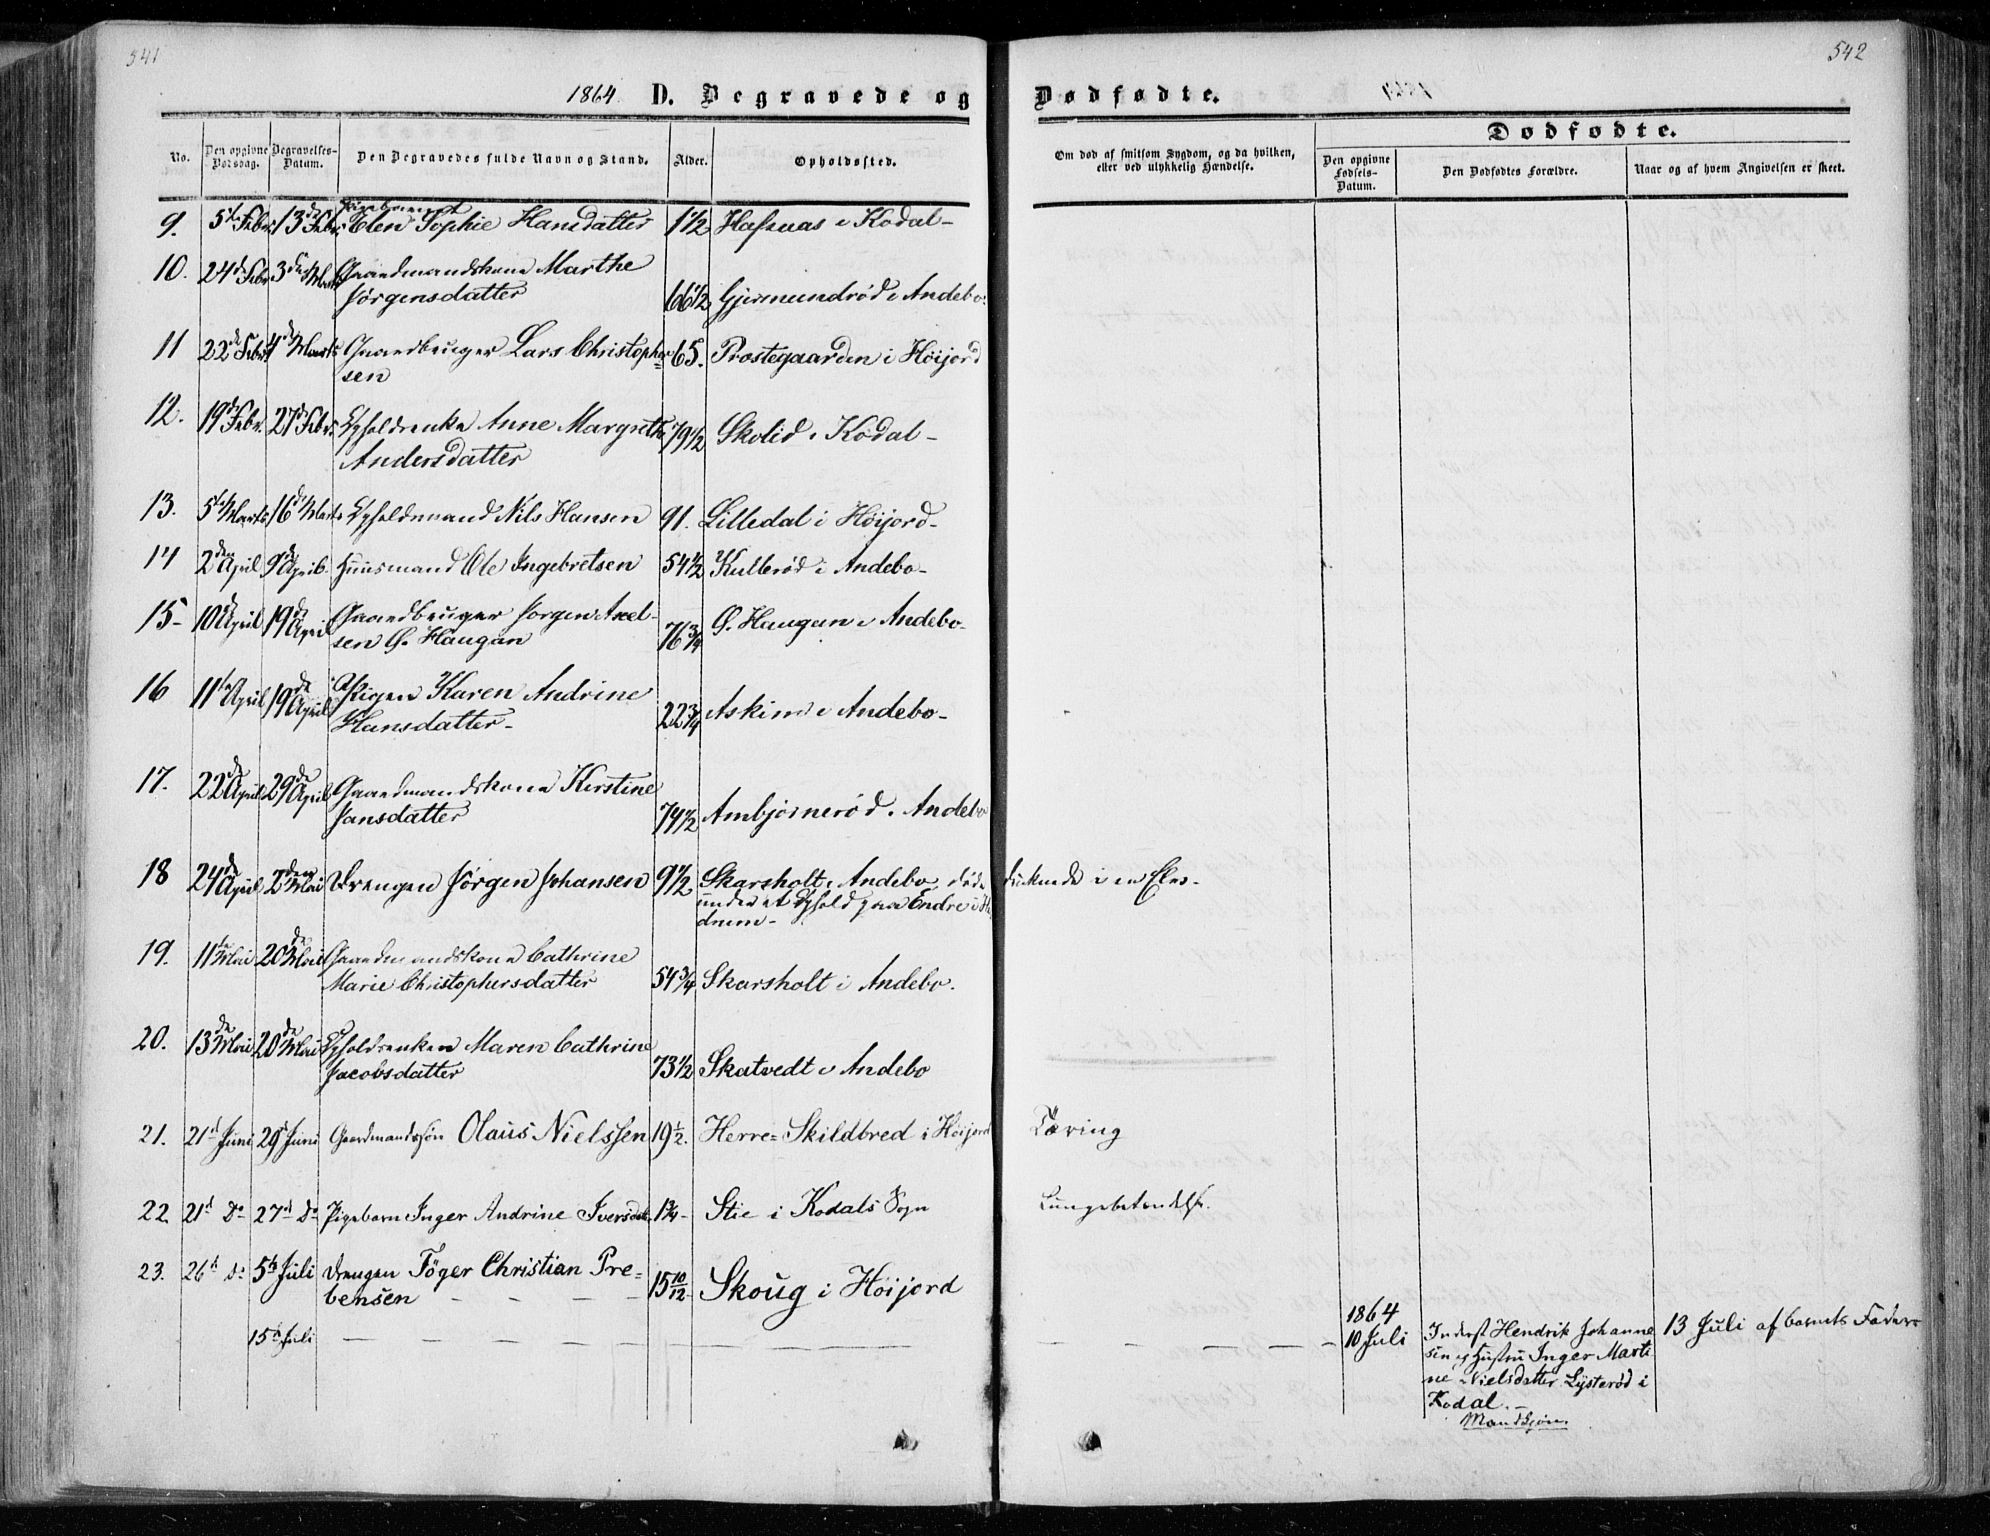 541
542
1864 D. Begravede og Dødfødte.
Dødfødte.
No. Den opgivne Dødsdag. Begravelses-Datum. Den Begravedes fulde Navn og Stand. Alder. Opholdssted. Om død af smitsom Sygdom, og da hvilken, eller ved ulykkelig Hændelse. Den opgivne Fødsels-Datum. Den Dødfødtes Forældre. Naar og af hvem Angivelsen er skeet.
Pigebarnet
9. 5te Febr. 13de Febr. Elen Sophie Hansdatter 1 1/2 Hafsnas i Kodal-
10. 24de Febr. 3die Marts Gaardmandskone Marthe
Jørgensdatter 66 1/2 Gjermundrød i Andebo.
11 22de Febr. 4de Marts Gaardbruger Lars Christopher= 65. Prostegaarden i Høijord
sen
12. 19de Febr. 27de Febr. Opholdsenke Anne Margrethe 79 1/2 Skolid i Kodal-
Andersdatter
13. 5te Marts 16de Marts Opholdsmand Nils Hansen 91. Lilledal i Høijord-
14 2den April 9de April Huusmand Ole Ingebretsen 54 1/2 Kullerød i Andebo-
15- 10de April 19de April Gaardbruger Jørgen Axel-
sen Ø. Haugan 76 3/4 Ø. Haugan i Andebo-
16 11te April 19de April Pigen Karen Andrine
Hansdatter- 22 3/4 Askim i Andebo-
17. 22de April 29de April Gaardmandskone Kirstine
Jansdatter 74 1/2 Ambjørnerød i Andebo
18 24de April 2den Mai Drengen Jørgen Johansen 9 1/2 Skarsholt i Andebo, døde druknede i en Elv.
under et Ophold paa Endre i He
drum-
19. 11te Mai 20de Mai Gaardmandskone Cathrine
Marie Christophersdatter 54 3/4 Skarsholt i Andebo.
20. 13de Mai 20de Mai Opholdsenken Maren Cathrine
Jacobsdatter 73 1/2 Skatvedt i Andebo
21. 21d Juni 29d Juni Gaardmandssøn Olaus Nielssen 19 1/2. Herre=Skildbred i Høijord Tæring
22. 21d Do 27d Do Pigebarn Inger Andrine Iversdatt. 1 3/4- Stie i Kodals Sogn Lungebetændelse.
23. 26d do 5te Juli Drengen Töger Christian Pre=
bensen - - - - 15 10/12- Skoug i Höijord
15d Juli
1864
10 Juli Inderst Hendrik Johanne 13 Juli af barnets Fader
sen og Hustru Inger Marti
ne Nielsdatter Lysterød i
Kodal.-
Mandkjøn.